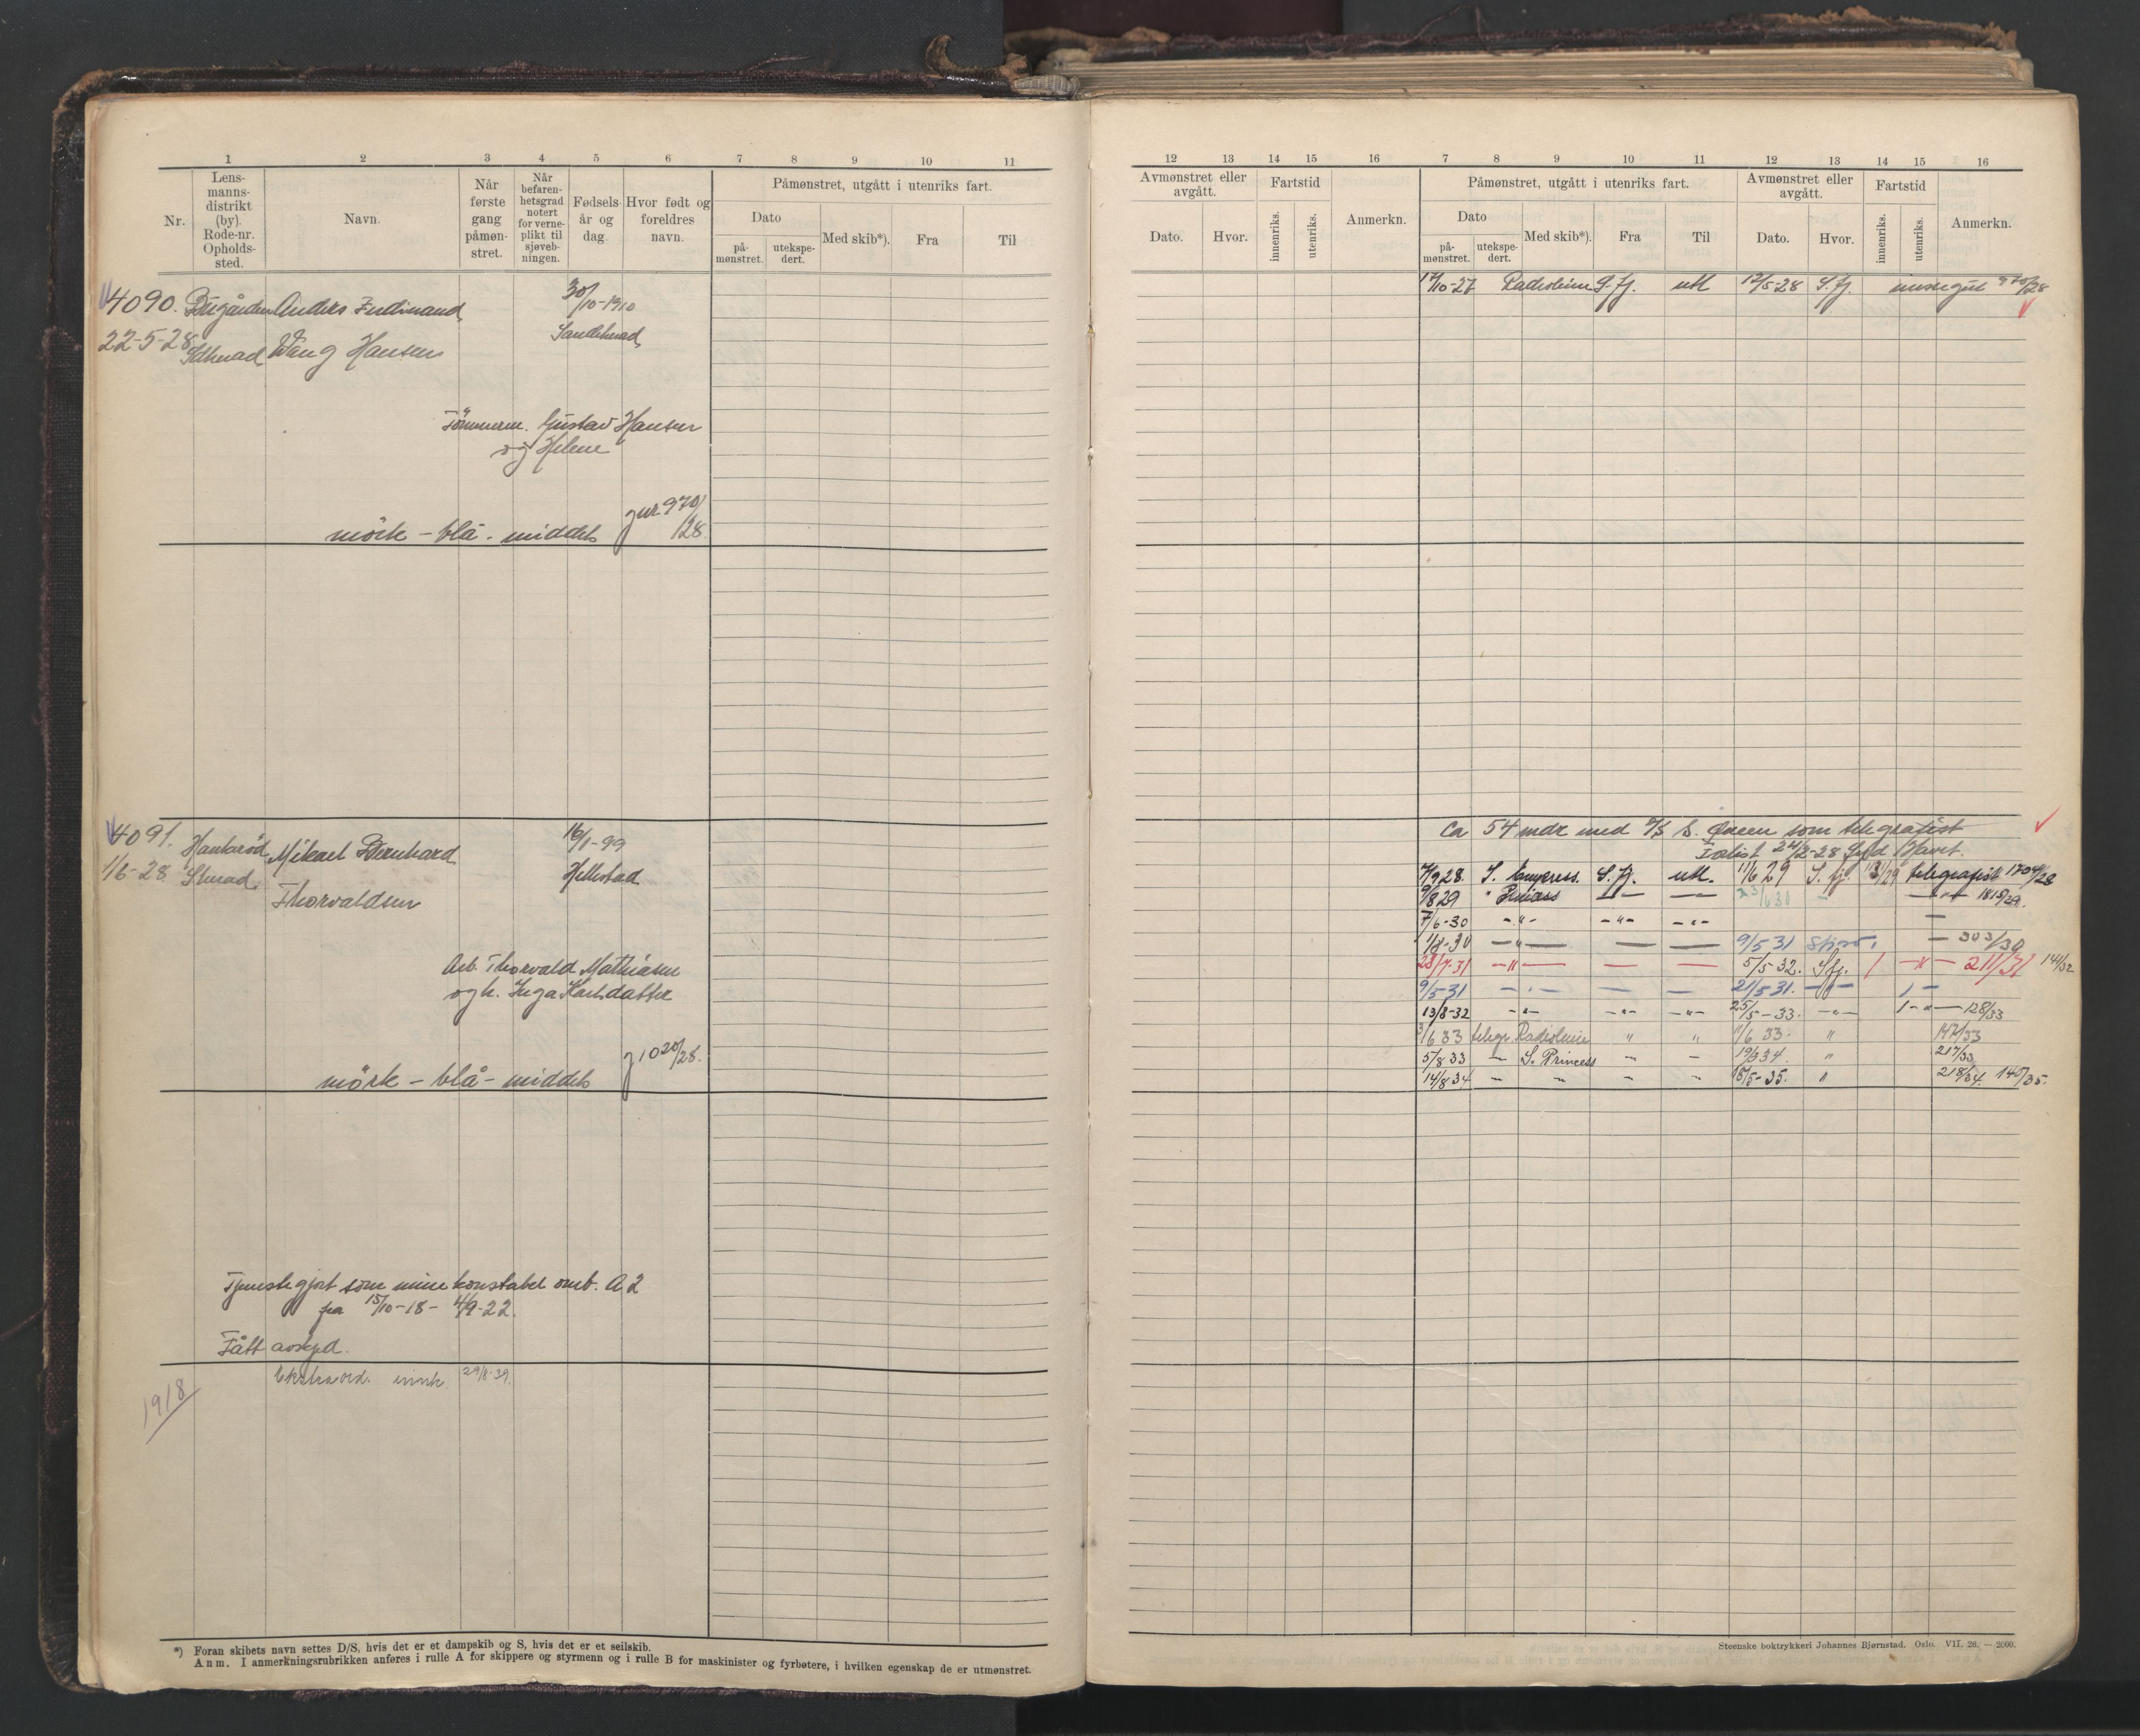 1 2 3 4 5 6 7 8 9 10 11
Nr.
Lens-
manns-
distrikt
(by).
Rode-nr.
Opholds-
sted.
Navn.
Når
første
gang
påmøn-
stret.
Når
befaren-
hetsgrad
notert
for verne-
plikt til
sjøveb-
ningen.
Fødsels-
år og
dag.
Hvor født og
foreldres
navn.
Påmønstret, utgått i utenriks fart.
Dato
på-
mønstret.
utekspe-
dert.
Med skib*).
Fra
Til
4090. Anders Ferdinand 30/10-1910
22-5-28 Wang Hansen Sandeherad
Tømmerm. Gustav Hansen
og Helene
970/28
mörk - blå - middels
4091. Mikael Bernhard 16/1-99
1/6-28 Thorvaldsen Hillestad
Arb. Thorvald Mathiasen
og h. Inga Karlsdatter
1020/28.
mörk - blå - middels
Tjenestegjort som mine konstabel omb. A2
fra 15/10-18 - 4/9-22.
Fått avskjed.
Ekstraord. 29/8-39.
1918
*) Foran skibets navn settes D/S, hvis det er et dampskib og S, hvis det er et seilskib.
Anm. I anmerkningsrubrikken anføres i rulle A for skippere og styrmenn og i rulle B for maskinister og fyrbøtere, i hvilken egenskap de er utmønstret.
12 13 14 15 16 7 8 9 10 11 12 13 14 15 16
Avmønstret eller
avgått.
Dato. Hvor.
Fartstid
innenriks.
utenriks.
Anmerkn.
Påmønstret, utgått i utenriks fart.
Dato
på-
mønstret.
utekspe-
dert.
Med skib*).
Fra
Til
Avmønstret eller
avgått.
Dato. Hvor.
Fartstid
innenriks.
utenriks.
Anmerkn.
17/10-27 S.fj. utl 12/5-28 S.fj. 970/28
Ca 54 mdr med S. Queen som telegrafist
Forlist 24/2-28 Syd Havet.
7/9 28. S. Empress. S.fj. utl. 11/6 29 S.fj. telegrafist 1704/28
9/8 29 " Prinsess — — — " 1815/29.
7/6-30 -"- -"- -"- —
1/8-30 -"- — — 9/5 31 — 303/30
28/7-31 -"- — — 5/5-32. S.fj. -"- 211/31 141/32
9/5-31 -"- — — 21/5 31. -"-
13/8-32 -"- -"- -"- 25/5-33. -"- 1-"- 128/33
3/6 33 telegr. " " 11/6 33. " 142/33
5/8 33 — S. Princess — — 19/3 34. " 217/33
14/8 34 — — — — 18/5-35. " 218/34. 140/35.
Steenske boktrykkeri Johannes Bjørnstad. Oslo. VII. 26. — 2000.